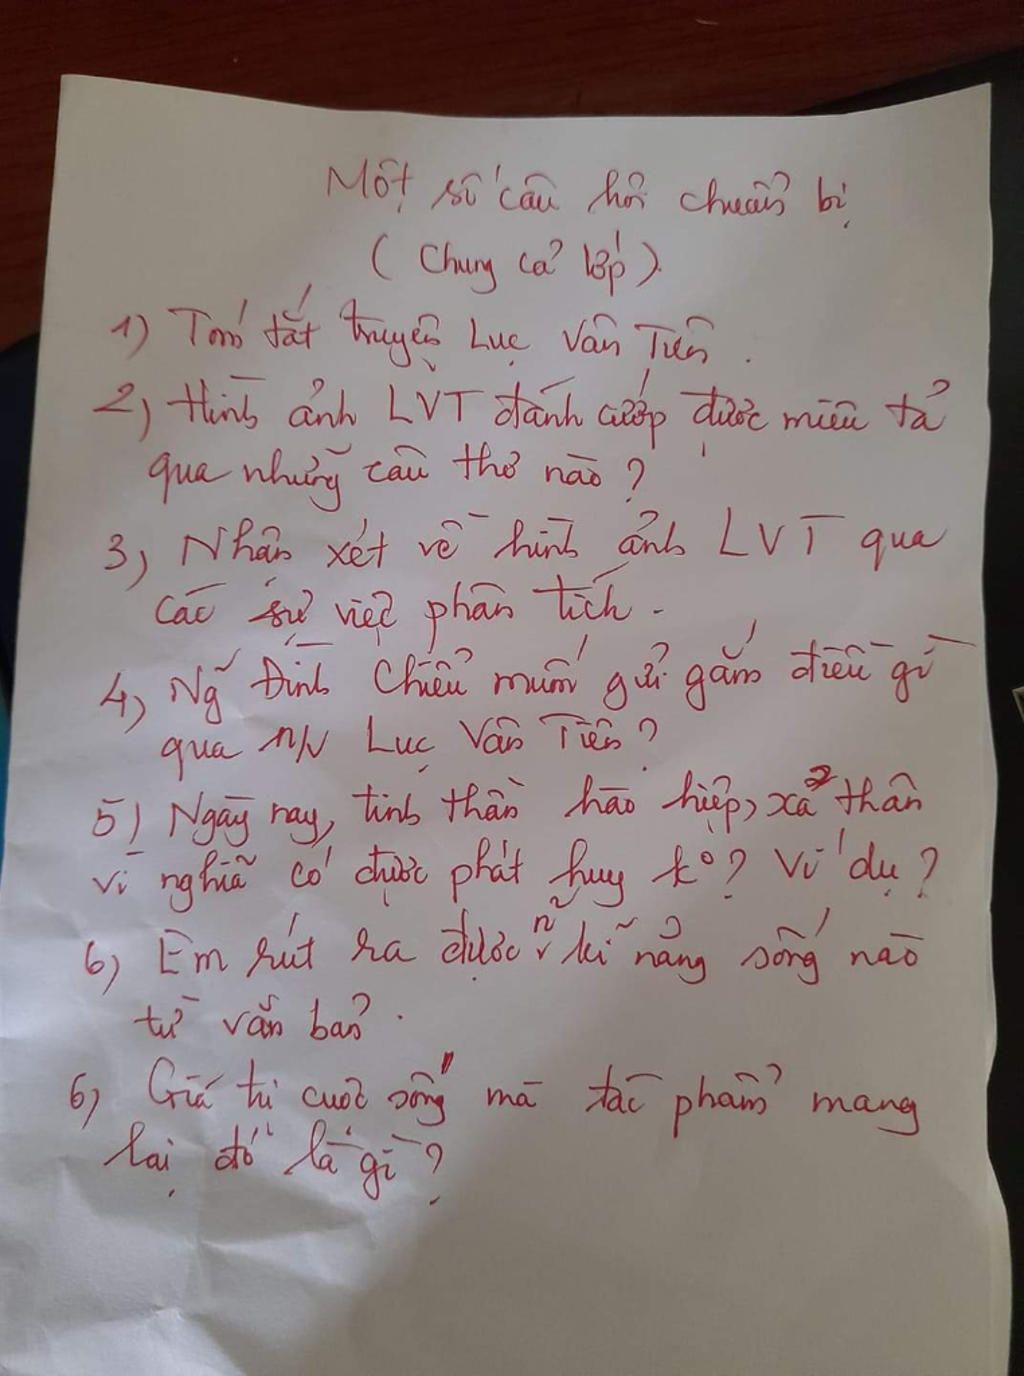 Một số câu hỏi chuẩn bị
( Chung cả lớp ).
1) Tóm tắt truyện Lục Vân Tiên .
2) Hình ảnh LVT đánh cướp được miêu tả
qua những câu thơ nào ?
3) Nhận xét về hình ảnh LVT qua
các sự việc phân tích .
4) Ng~ Đình Chiểu muốn gửi gắm điều gì
qua n/v Lục Vân Tiên ?
5) Ngày nay, tinh thần hào hiệp, xả thân
vì nghĩa có được phát huy k° ? Ví dụ ?
6) Em rút ra được n~ kĩ năng sống nào
từ văn bản .
6) Giá trị cuộc sống mà tác phẩm mang
lại đó là gì ?